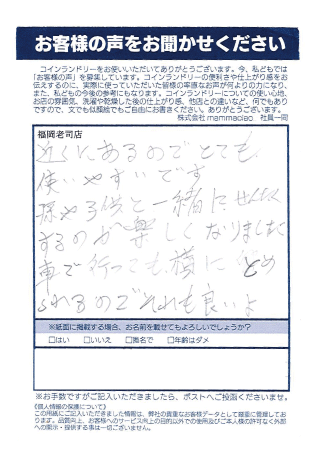 お客様の声をお聞かせください
コインランドリーをお使いいただいてありがとうございます。今、私どもでは
「お客様の声」を募集しています。コインランドリーの便利さや仕上がり感をお
伝えするのに、実際に使っていただいた皆様の率直なお声が何よりの力になり、
また、私どもの今後の参考にもなります。コインランドリーについての使い心地、
お店の雰囲気、洗濯や乾燥した後の仕上がり感、他店との違いなど、何でもあり
ですので、文でも似顔絵でもご自由にお書きください。ありがとうございます。
株式会社mammaciao 社員一同
福岡老司店
近くにあるのでとても
使いやすいです
孫や子供と一緒にせんたく
するのが楽しくなりました
車で行っても横にとめ
られるのでそれも良いよ
※紙面に掲載する場合、お名前を載せてもよろしいでしょうか？
□はい □いいえ □匿名で □年齢はダメ
※お手数ですがご記入いただきましたら、ポストへご投函くださいませ。
《個人情報の保護について》
この用紙にご記入いただきました情報は、弊社の貴重なお客様データとして厳重に管理してお
ります。品質向上、お客様へのサービス向上の目的以外での使用及びご本人様の許可なく外部
への開示・提供する事は一切ございません。